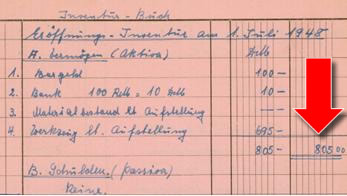 Inventur-Buch
Eröffnungs-Inventur am 1. Juli 1948
A. Vermögen (Aktiva) DM
1. Bargeld 100 -
2. Bank 100 RM = 10 DM 10 -
3. Materialbestand lt. Aufstellung
4. Werkzeug lt. Aufstellung 695 -
805 - 805 00
B. Schulden (Passiva)
Keine.